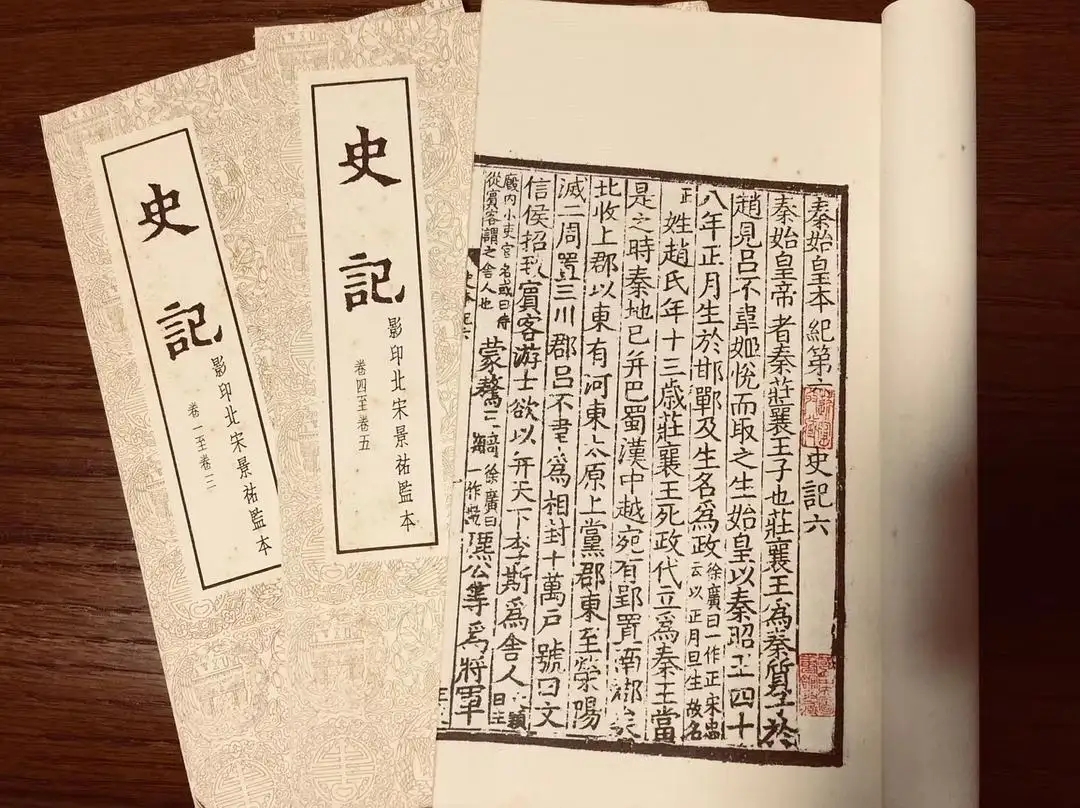 史記
影印北宋景祐監本
卷一至卷三
史記
影印北宋景祐監本
卷四至卷五
秦始皇本紀第六 史記六
秦始皇帝者秦莊襄王子也莊襄王爲秦質子於
趙見呂不韋姬悅而取之生始皇以秦昭王四十
八年正月生於邯鄲及生名爲政徐廣曰一作正宋忠云以正月旦生故名
正姓趙氏年十三歲莊襄王死政代立爲秦王當
是之時秦地已并巴蜀漢中越宛有郢置南郡矣
北收上郡以東有河東太原上黨郡東至滎陽
滅二周置三川郡呂不韋爲相封十萬戶號曰文
信侯招致賓客游士欲以并天下李斯爲舍人文穎曰主
廄内小吏官名或曰侍從賓客謂之舍人也蒙驁王齮徐廣曰一作齕麃公等爲將軍